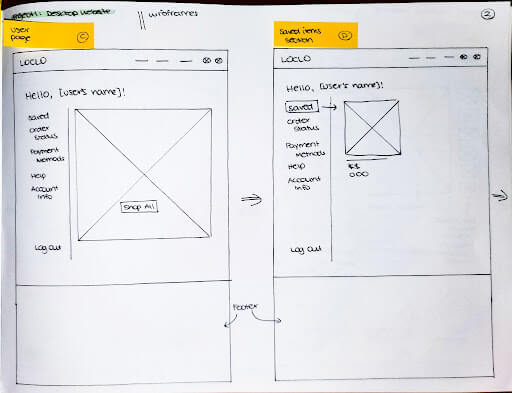 Project 1: Desktop Website
wireframes
2
User
page
C
LOCLO
Hello, [user's name]!
Saved
Order
Status
Payment
Methods
Help
Account
Info
Log Out
Shop All
Saved items
section
D
LOCLO
Hello, [user's name]!
Saved
Order
Status
Payment
Methods
Help
Account
Info
Log Out
Footer